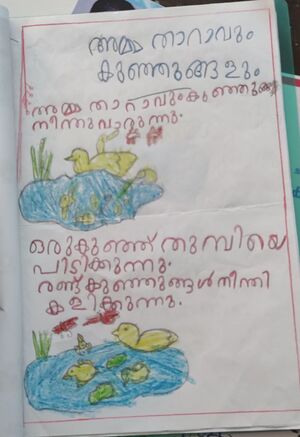 അമ്മ താറാവും
കുഞ്ഞുങ്ങളും
അമ്മ താറാവുംകുഞ്ഞുങ്ങളും
നീന്തുവാറുന്നു.
ഒരുകുഞ്ഞ് തുമ്പിയെ
പിടിക്കുന്നു.
രണ്ട്കുഞ്ഞുങ്ങൾനീന്തി
കളിക്കുന്നു.